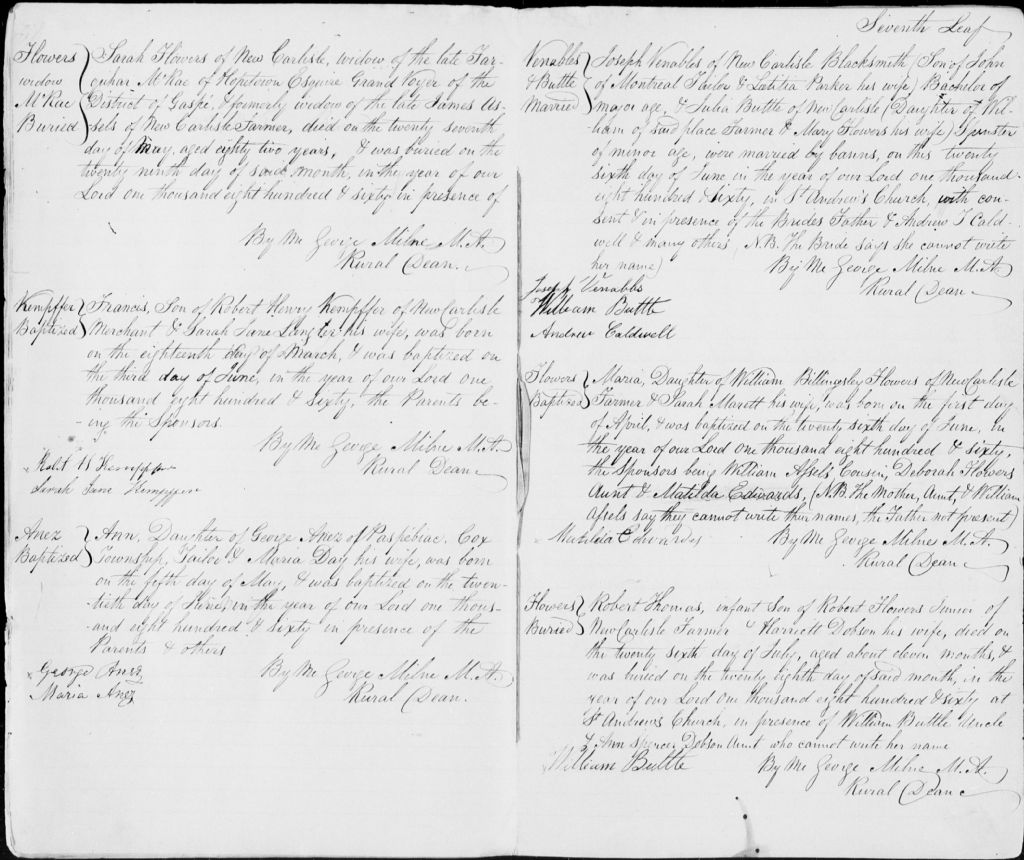 Flowers widow McRae Buried
Sarah Flowers of New Carlisle, widow of the late Far-
quhar McRae of Hopetown Esquire Grand Voyer of the
District of Gaspé, & formerly widow of the late James As-
sels of New Carlisle Farmer, died on the twenty seventh
day of May, aged eighty two years, & was buried on the
twenty ninth day of said month, in the year of our
Lord one thousand eight hundred & sixty in presence of
By Me George Milne M.A.
Rural Dean.
Kempffer Baptized
Francis, Son of Robert Henry Kempffer of New Carlisle
Merchant & Sarah Jane his wife, was born
on the eighteenth day of March, & was baptized on
the third day of June, in the year of our Lord one
thousand eight hundred & sixty, the Parents be-
-ing the Sponsors.
By Me George Milne M.A.
Rural Dean
Robt H Kempffer
Sarah Jane Kempffer
Anez Baptized
Ann, Daughter of George Anez of Paspebiac, Cox
Township, Tailor & Maria Day his wife, was born
on the fifth day of May, & was baptized on the twen-
tieth day of June, in the year of our Lord one thous-
-and eight hundred & sixty in presence of the
Parents & others
By Me George Milne M.A.
Rural Dean.
George Anez
Maria Anez
Seventh Leaf
Venables & Buttle Married
Joseph Venables of New Carlisle Blacksmith (Son of John
of Montreal Tailor & Latitia Parker his wife) Bachelor of
major age, & Julia Buttle of New Carlisle (Daughter of Wil-
liam of said place Farmer & Mary Flowers his wife) Spinster
of minor age, were married by banns, on this twenty
sixth day of June in the year of our Lord one thousand
eight hundred & sixty, in St Andrew's Church, with con-
sent & in presence of the Brides Father & Andrew T Cald-
well & many others (N.B. The Bride says she cannot write
her name)
By Me George Milne M.A.
Rural Dean
Joseph Venables
William Buttle
Andrew Caldwell
Flowers Baptized
Maria, Daughter of William Billingsley Flowers of New Carlisle
Farmer & Sarah Marett his wife, was born on the first day
of April, & was baptized on the twenty sixth day of June, in
the year of our Lord one thousand eight hundred & sixty,
the sponsors being William Assels Cousin, Deborah Flowers
Aunt & Matilda Edwards, (N.B. The Mother, Aunt, & William
Assels say they cannot write their names, the Father not present)
Matilda Edwards
By Me George Milne M.A.
Rural Dean
Flowers Buried
Robert Thomas, infant Son of Robert Flowers Junior of
New Carlisle Farmer & Harriett Dobson his wife, died on
the twenty sixth day of July, aged about eleven months, &
was buried on the twenty eighth day of said month, in the
year of our Lord one thousand eight hundred & sixty at
St Andrews Church, in presence of William Buttle Uncle
& Ann Spencer Dobson Aunt who cannot write her name
William Buttle
By Me George Milne M.A.
Rural Dean